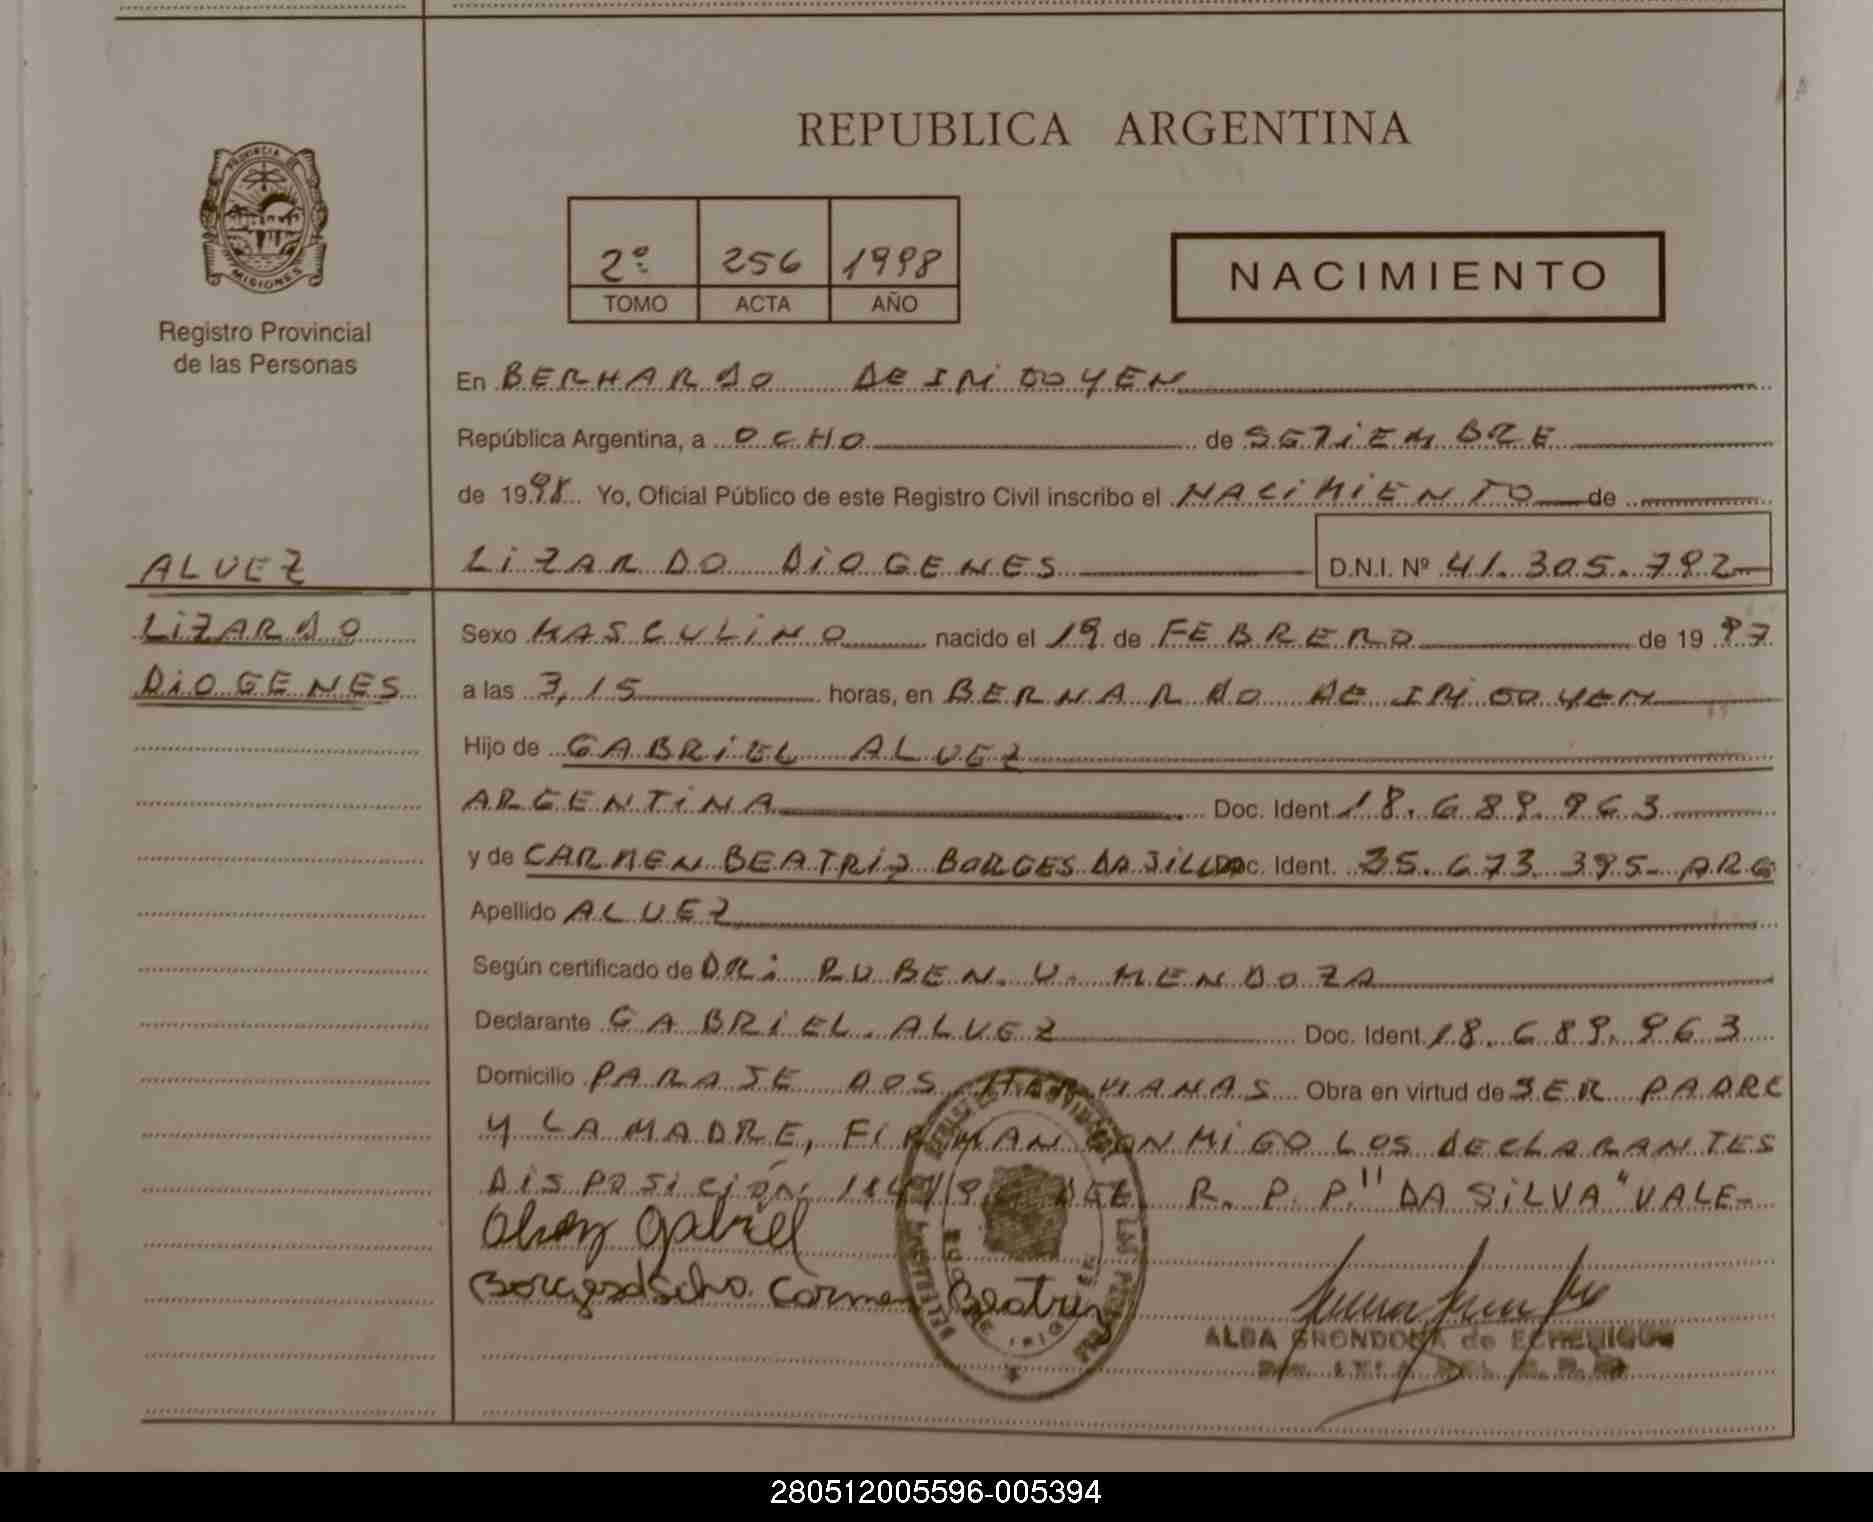 PROVINCIA DE
MISIONES
Registro Provincial
de las Personas
REPUBLICA ARGENTINA
2º 256 1998
TOMO ACTA AÑO
NACIMIENTO
En BERNARDO DE IRIGOYEN
República Argentina, a OCHO de SETIEMBRE
de 1998 Yo, Oficial Público de este Registro Civil inscribo el NACIMIENTO de
ALVEZ
LIZARDO
DIOGENES
LIZARDO DIOGENES D.N.I. Nº 41.305.792
Sexo MASCULINO nacido el 19 de FEBRERO de 1997
a las 3,15 horas, en BERNARDO DE IRIGOYEN
Hijo de GABRIEL ALVEZ
ARGENTINA Doc. Ident. 18.689.963
y de CARMEN BEATRIZ BORGES DA SILVA Doc. Ident. 35.673.395- ARG
Apellido ALVEZ
Según certificado de DR: RUBEN. V. MENDOZA
Declarante GABRIEL. ALVEZ Doc. Ident. 18.689.963
Domicilio PARAJE DOS HERMANAS Obra en virtud de SER PADRE
Y LA MADRE, FIRMAN CONMIGO LOS DECLARANTES
DISPOSICIÓN DEL R.P.P. "DA SILVA" VALE-
Alvez Gabriel
Borges da Silva. Carmen Beatriz
ALBA GRONDONA de ECHERIQUE
280512005596-005394